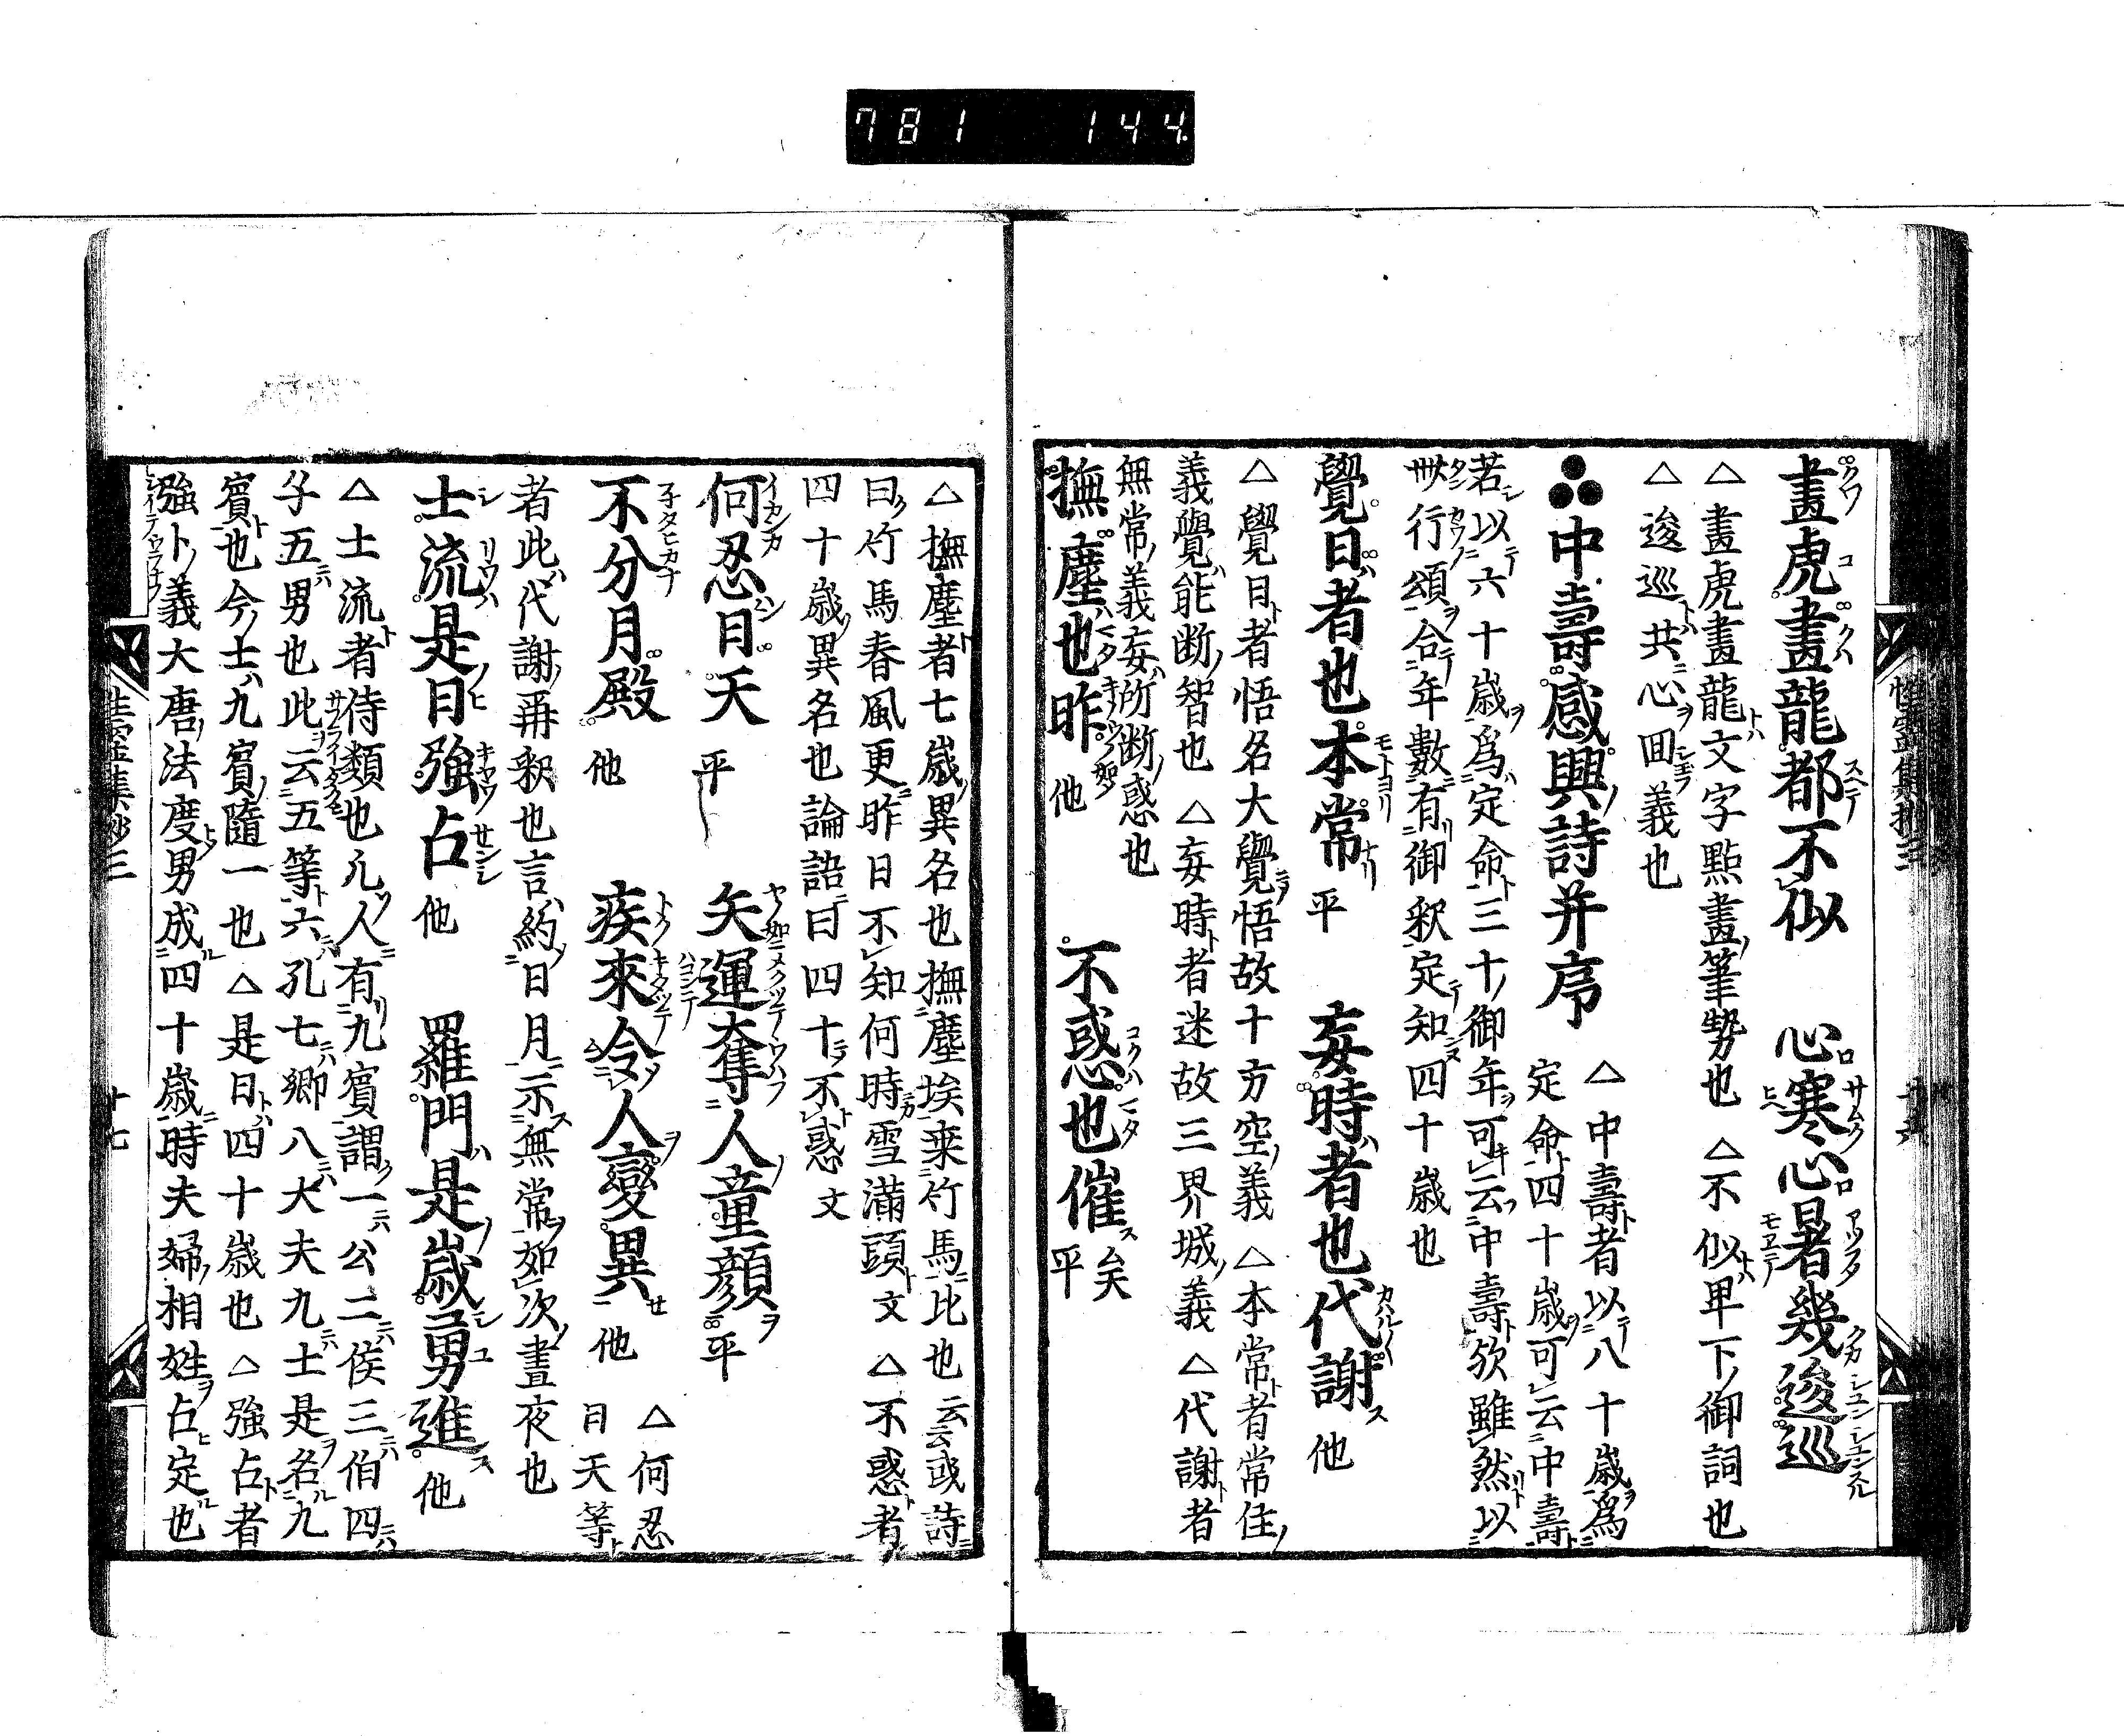 781 144
畫虎畫龍都不似 心寒心暑幾逡巡
△畫虎畫龍文字點畫筆勢也 △不似卑下御詞也
△逡巡共心囬義也
中壽感興詩并序 △中壽者以八十歲爲
定命四十歲可云中壽
若以六十歲爲定命三十御年可云中壽欤雖然以
丗行頌合年數有御釈定知四十歲也
覺日者也本常 平 妄時者也代謝 他
△覺日者悟名大覺悟故十方空義 △本常者常住
義覺能断智也 △妄時者迷故三界城義 △代謝者
無常義妄所断惑也
撫塵也昨 他 不惑也催矣 平
△撫塵者七歲異名也撫塵埃乗竹馬比也云云或詩
曰竹馬春風更昨日不知何時雪滿頭文 △不惑者
四十歲異名也論語曰四十不惑文
何忍日天 平 矢運奪人童顔 平
不分月殿 他 疾來令人變異 他 △何忍
日天等
者此代謝再釈也言約日月示無常如次晝夜也
士流是日強占 他 羅門是歲勇進 他
△士流者侍類也凡人有九賓謂一公二侯三伯四
子五男也此云五等六孔七卿八大夫九士是名九
賓也今士九賓隨一也 △是日四十歲也 △強占者
強卜義大唐法度男成四十歲時夫婦相姓占定也
十七